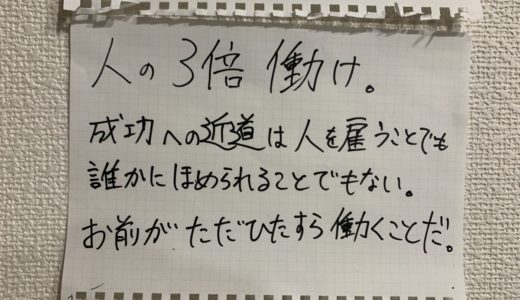 人の3倍働け。
成功への近道は人を雇うことでも
誰かにほめられることでもない。
お前がただひたすら働くことだ。